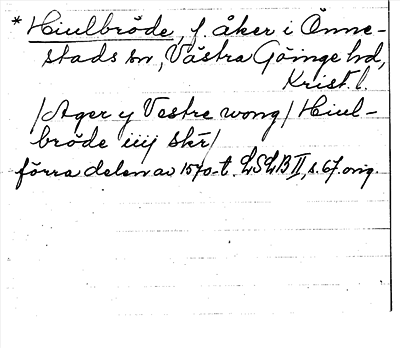 * Hiulbröde, f. åker i Önne-
stads sn, Västra Göinge hd,
Krist. l.
/Ager y Vestre wong/ Hiul-
bröde iiij skr/
förra delen av 1570-t. LSLB II, s. 67. orig.